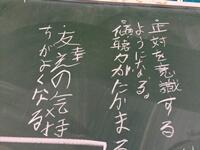 正対を意識する
ようになる。
傾聴力がたかまる
・友達の気持
ちがよくなる